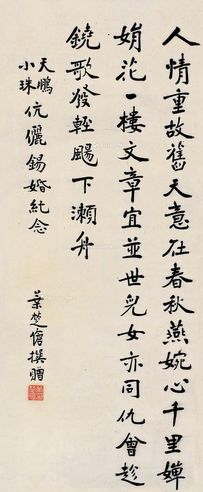 人情重故舊天意在春秋燕婉心千里嬋
娟花一樓文章宜並世兒女亦同仇會趁
鐃歌發輕颺下瀨舟
天鵬
小珠
伉儷錫婚紀念
葉楚傖撰贈